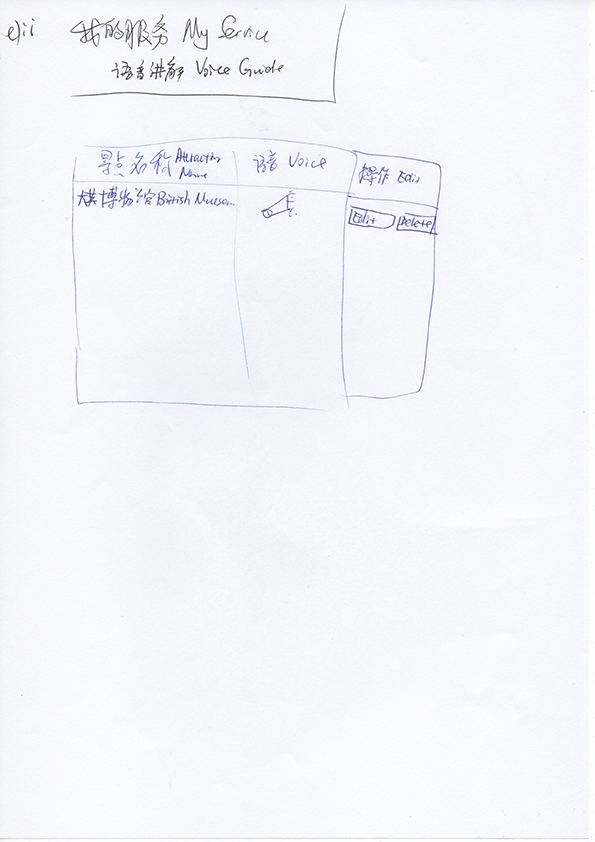 e)ii 我的服务 My Service
语音讲解 Voice Guide
景点名称 Attraction Name
语音 Voice
操作 Edit
博物馆 British Museum
Edit Delete